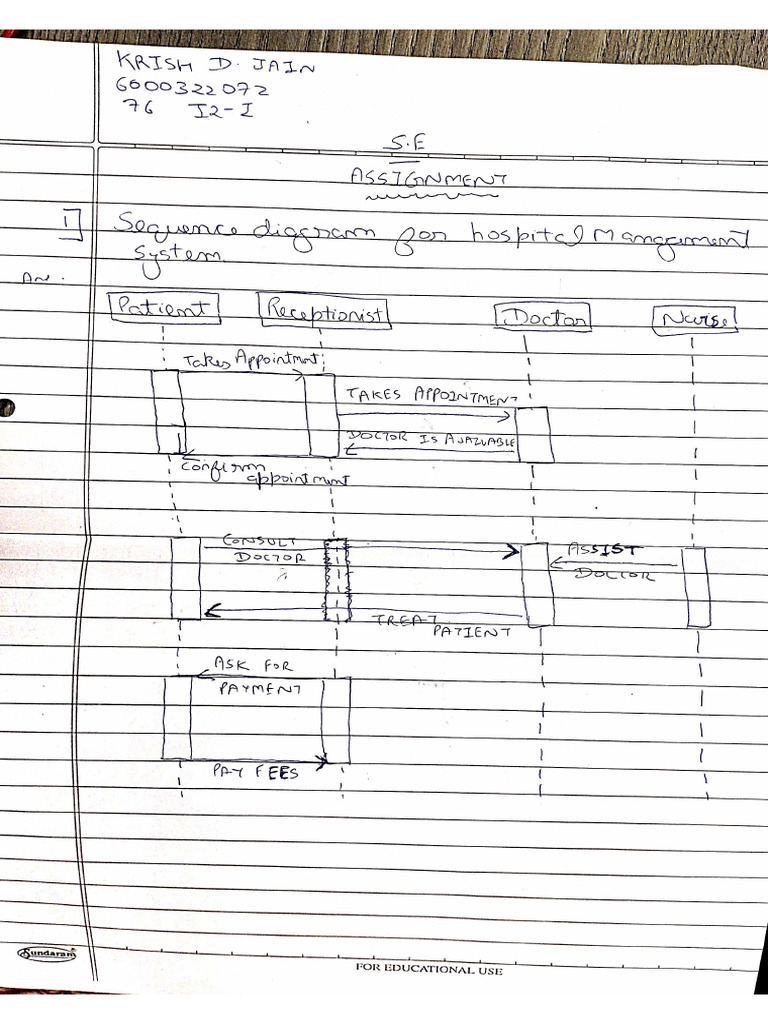 KRISH D. JAIN
6000322072
76 I2-I
S.E
ASSIGNMENT
1] Sequence diagram for hospital Mangement
System.
An.
Patient Receptionist Doctor Nurse
Takes Appointment
TAKES APPOINTMENT
DOCTOR IS AVAILABLE
Confirm
appointment
CONSULT
DOCTOR
ASSIST
DOCTOR
TREAT
PATIENT
ASK FOR
PAYMENT
PAY FEES
Sundaram
FOR EDUCATIONAL USE